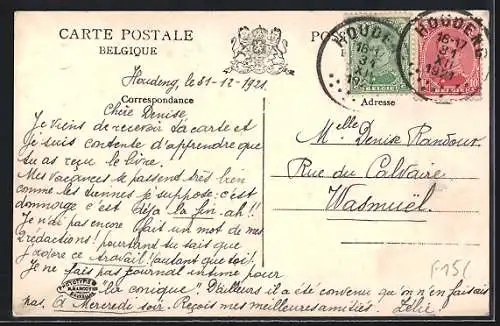 CARTE POSTALE
BELGIQUE
Houdeng, le 31-12-1921.
Correspondance
Chère Denise,
Je viens de recevoir ta carte et
je suis contente d'apprendre que
tu as reçu le livre.
Mes vacances se passent très bien
comme les tiennes je suppose: c'est
dommage c'est déjà la fin. ah!!
Je n'ai pas encore fait un mot de mes
rédactions! pourtant tu sais que
j'adore ce travail! (autant que toi).
Je ne fais pas journal intime pour
conique! D'ailleurs il a été convenu qu'on n'en faisait
pas. A Mercredi soir. Reçois mes meilleures amitiés. Zélie.
HOUDENG
16-17
31
XII
1921
HOUDENG
16-17
31
XII
1921
BELGIË
Adresse
Melle Denise Randour
Rue du Calvaire
Wasmuël.
F-15(